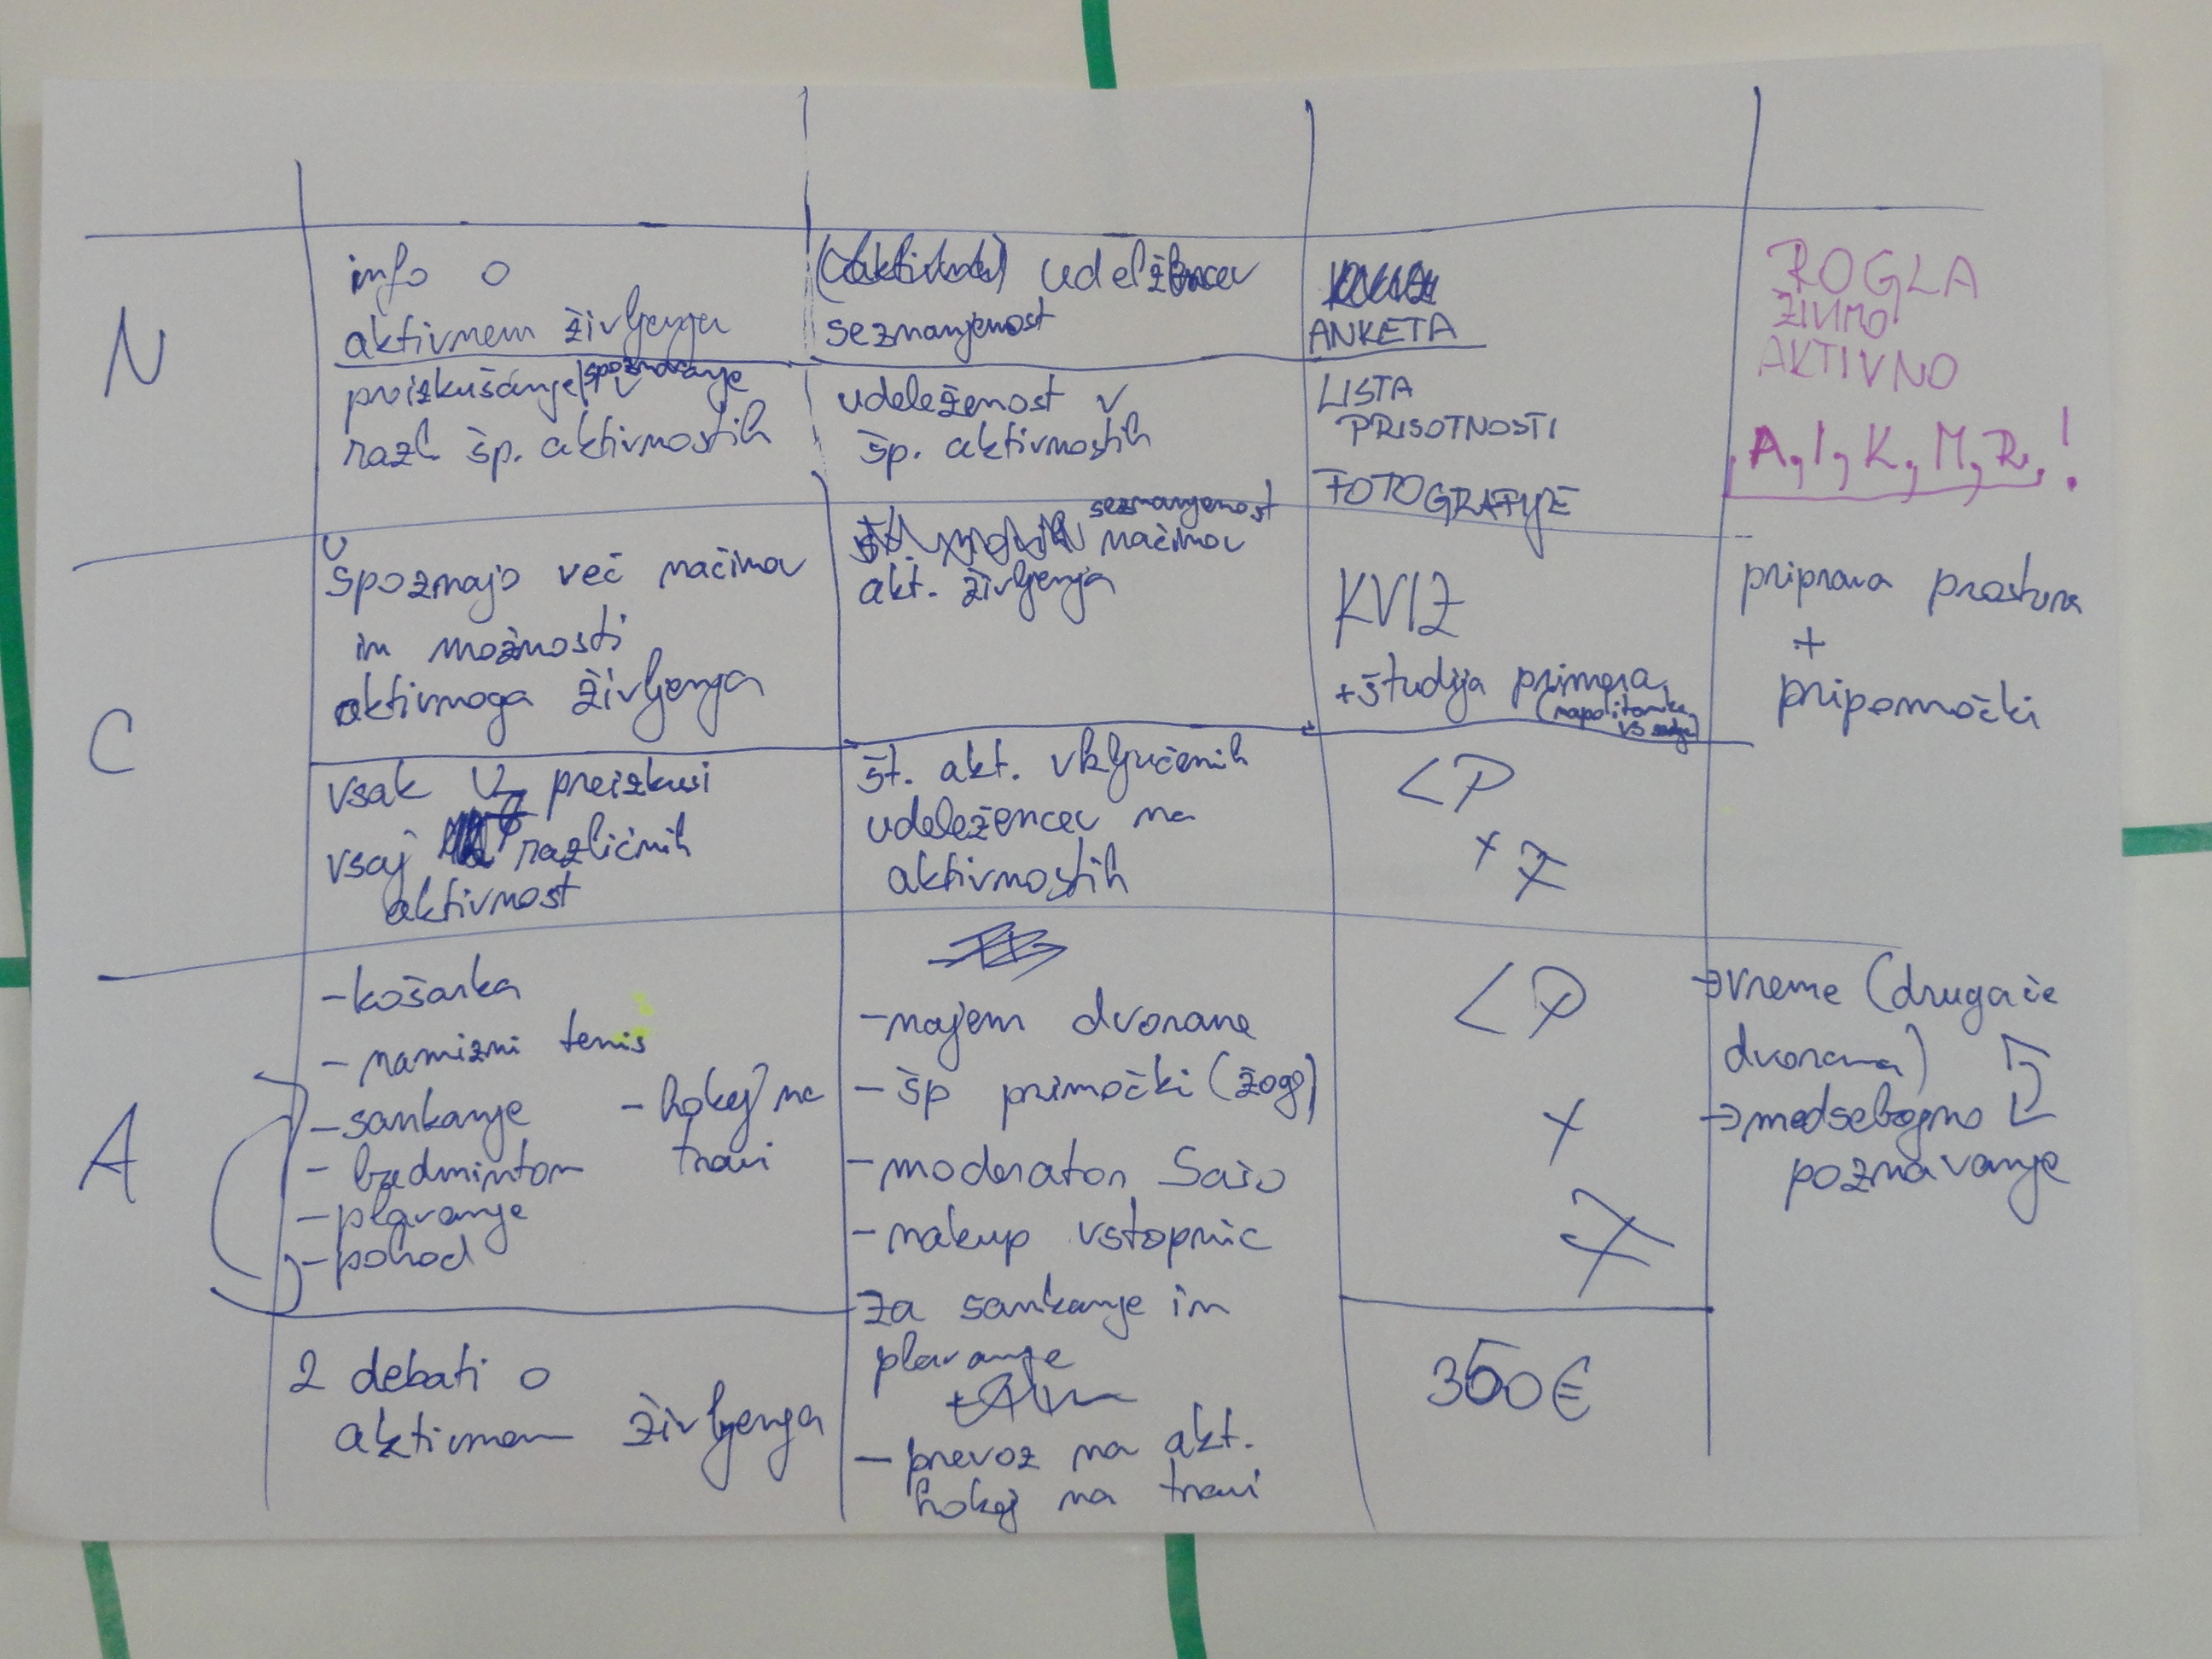 N
info o
aktivnem življenja
preizkušanje/spoznavanje
razl. šp. aktivnostih
udeležencev
seznanjenost
udeleženost v
šp. aktivnostih
ANKETA
LISTA
PRISOTNOSTI
FOTOGRAFIJE
ROGLA
ŽIVIMO
AKTIVNO
A, I, K, M, R, !
C
U
spoznajo več načinov
in možnosti
aktivnoga življenja
vsak U preizkusi
vsaj 7 različnih
aktivnost
seznanjenost
načinov
akt. življenja
št. akt. vključenih
udeležencev na
aktivnostih
KVIZ
+študija primera
(napolitanke
vs
LP
x 7
priprava prostora
+
pripomočki
A
-košarka
- namizni tenis
-sankanje
- hokej na
travi
- badminton
-plavanje
-pohod
2 debati o
aktivnem življenja
-najem dvorane
- šp primočki (žoge)
-moderator Sašo
-nakup vstopnic
za sankanje in
plavanje
- prevoz na akt.
hokej na travi
LP
x
7
350€
→vreme (drugače
dvorana)
→medsebojno
poznavanje